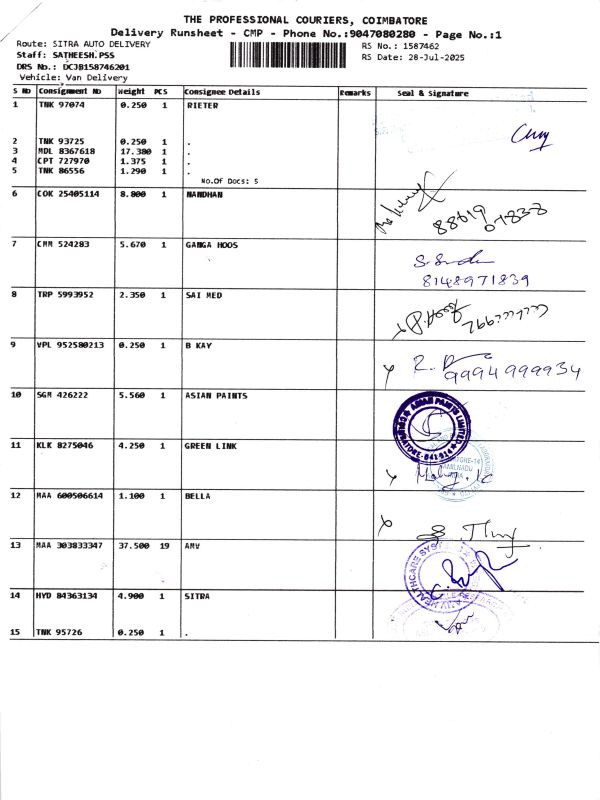 THE PROFESSIONAL COURIERS, COIMBATORE
Delivery Runsheet - CMP - Phone No.:9047080280 - Page No.:1
Route: SITRA AUTO DELIVERY
RS No.: 1587462
Staff: SATHEESH.PSS
RS Date: 28-Jul-2025
DRS No.: DCJB158746201
Vehicle: Van Delivery
S No Consignment No Weight PCS Consignee Details Remarks Seal & Signature
1 TNK 97074 0.250 1 RIETER
2 TNK 93725 0.250 1 .
3 MDL 8367618 17.380 1 .
4 CPT 727970 1.375 1 .
5 TNK 86556 1.290 1 .
No.Of Docs: 5
6 COK 25405114 8.800 1 NANDHAN
88619 07838
7 CMM 524283 5.670 1 GANGA HOOS
8148971839
8 TRP 5993952 2.350 1 SAI MED
9 VPL 952580213 0.250 1 B KAY
9994999934
10 SGM 426222 5.560 1 ASIAN PAINTS
ASIAN PAINTS LIMITED
COIMBATORE-641 014
11 KLK 8275046 4.250 1 GREEN LINK
12 MAA 600506614 1.100 1 BELLA
13 MAA 303833347 37.500 19 AMV
HEALTHCARE SYS
14 HYD 84363134 4.900 1 SITRA
15 TNK 95726 0.250 1 .